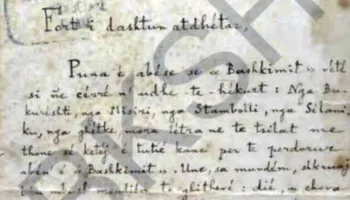 Fort i dashtun atdhetar,
Puna é abése se « Bashkimit » vété
si ñe cérré n' udhe te hékuet: Nga Bu-
kureshti, nga Misiri, nga Stambolli, nga Sélani-
ku, nga ghitke, mora létra ne te tsilat me
thone se kétej é tutié kané per te perdorue
abén é « Bashkimit ». Une, sa mundém, shkruaj
te ghithevé: dié, u